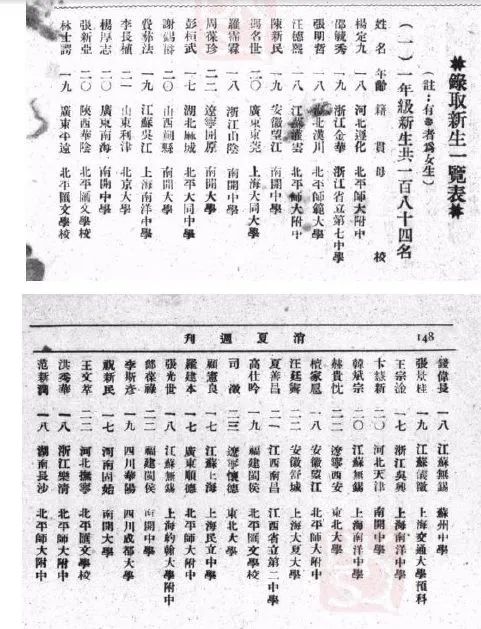 錄取新生一覽表
(註:有 者爲女生)
(一)一年級新生共一百八十四名
姓名 年齡 籍貫 母校
楊定九 一八 河北遵化 北平師大附中
邵毓秀 一九 浙江金華 浙江省立第七中學
張明哲 一九 湖北漢川 北平師範大學
汪德熙 一八 江蘇灌雲 北平師大附中
陳新民 一九 安徽望江 南開中學
馮名世 二〇 廣東東莞 上海大同大學
羅霈霖 一八 浙江山陰 南開中學
周葆珍 二二 遼寧開原 南開大學
彭桓武 一七 湖北麻城 北平大同中學
謝錫爵 二〇 山西朔縣 南開大學
費彝法 一九 江蘇吳江 上海南洋中學
李長植 二一 山東利津 北京大學
楊厚志 二〇 廣東南海 南開中學
張新亞 二〇 陝西華陰 北平匯文學校
林士諤 一九 廣東平遠 北平匯文學校
148
清夏週刊
錢偉長 一八 江蘇無錫 蘇州中學
張景桂 一九 江蘇儀徵 上海交通大學預科
王宗淦 一七 浙江吳興 上海南洋中學
卞慧新 二〇 河北天津 南開中學
韓斌宗 二〇 江蘇無錫 上海南洋中學
赫貴忱 二二 遼寧西安 東北大學
檀家鳳 一八 安徽望江 北平師大附中
汪廷霱 二二 安徽舒城 上海大夏大學
夏善昌 二一 江西南昌 江西省立第二中學
高仕吟 一九 福建閩侯 北平匯文學校
司徵 二三 遼寧懷德 東北大學
顧憲良 一七 江蘇上海 上海民立中學
羅建本 一七 廣東順德 北平師大附中
張光世 一八 江蘇無錫 上海約翰大學附中
鄭葆祿 二二 福建閩侯 南開中學
李斯彥 一九 四川華陽 四川成都大學
祝新民 一七 河南固始 南開大學
王文萃 二二 河北撫寧 北平匯文學校
洪秀華 一八 浙江樂清 北平師大附中
范新潤 一八 湖南長沙 北平師大附中